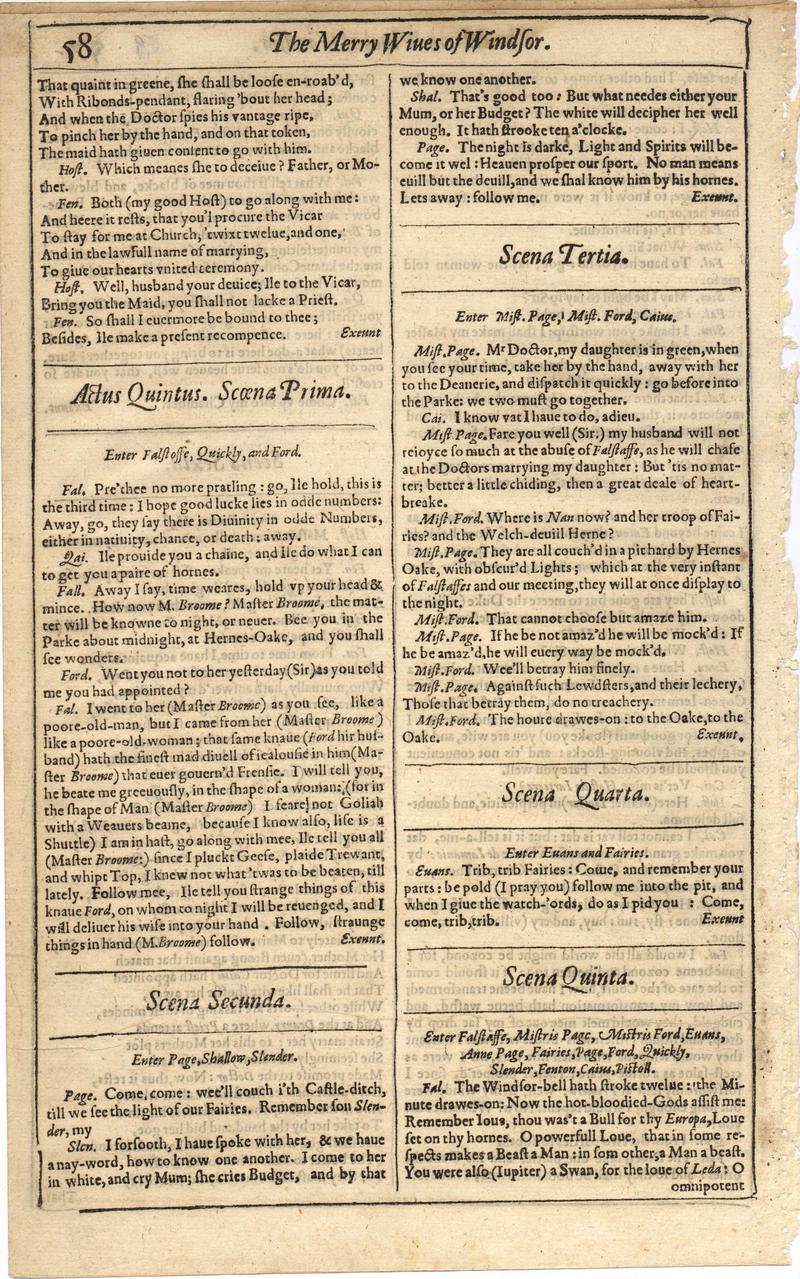 58
The Merry Wiues of Windſor.
That quaint in greene, ſhe ſhall be looſe en-roab'd,
With Ribonds-pendant, flaring 'bout her head;
And when the Doctor ſpies his vantage ripe,
To pinch her by the hand, and on that token,
The maid hath giuen conſent to go with him.
Hoſt. Which meanes ſhe to deceiue? Father, or Mo-
ther.
Fen. Both (my good Hoſt) to go along with me:
And heere it reſts, that you'l procure the Vicar
To ſtay for me at Church, 'twixt twelue, and one,
And in the lawfull name of marrying,
To giue our hearts vnited ceremony.
Hoſt. Well, husband your deuice; Ile to the Vicar,
Bring you the Maid, you ſhall not lacke a Prieſt.
Fen. So ſhall I euermore be bound to thee;
Beſides, Ile make a preſent recompence. Exeunt
Actus Quintus. Scœna Prima.
Enter Falſtoffe, Quickly, and Ford.
Fal. Pre'thee no more pratling: go, Ile hold, this is
the third time: I hope good lucke lies in odde numbers:
Away, go, they ſay there is Diuinity in odde Numbers,
either in natiuity, chance, or death: away.
Qui. Ile prouide you a chaine, and Ile do what I can
to get you a paire of hornes.
Fall. Away I ſay, time weares, hold vp your head &
mince. How now M. Broome? Maſter Broome, the mat-
ter will be knowne to night, or neuer. Bee you in the
Parke about midnight, at Hernes-Oake, and you ſhall
ſee wonders.
Ford. Went you not to her yeſterday (Sir) as you told
me you had appointed?
Fal. I went to her (Maſter Broome) as you ſee, like a
poore-old-man, but I came from her (Maſter Broome)
like a poore-old-woman; that ſame knaue (Ford hir huſ-
band) hath the fineſt mad diuell of iealouſie in him (Ma-
ſter Broome) that euer gouern'd Frenſie. I will tell you,
he beate me greeuouſly, in the ſhape of a woman: (for in
the ſhape of Man (Maſter Broome) I feare not Goliah
with a Weauers beame, becauſe I know alſo, life is a
Shuttle) I am in haſt, go along with mee, Ile tell you all
(Maſter Broome:) ſince I pluckt Geeſe, plaide Trewant,
and whipt Top, I knew not what 'twas to be beaten, till
lately. Follow mee, Ile tell you ſtrange things of this
knaue Ford, on whom to night I will be reuenged, and I
will deliuer his wife into your hand. Follow, ſtraunge
things in hand (M. Broome) follow. Exeunt.
Scena Secunda.
Enter Page, Shallow, Slender.
Page. Come, come: wee'll couch i'th Caſtle-ditch,
till we ſee the light of our Fairies. Remember ſon Slen-
der, my
Slen. I forſooth, I haue ſpoke with her, & we haue
a nay-word, how to know one another. I come to her
in white, and cry Mum; ſhe cries Budget, and by that
we know one another.
Shal. That's good too: But what needes either your
Mum, or her Budget? The white will decipher her well
enough. It hath ſtrooke ten a'clocke.
Page. The night is darke, Light and Spirits will be-
come it wel: Heauen proſper our ſport. No man means
euill but the deuill, and we ſhal know him by his hornes.
Lets away: follow me. Exeunt.
Scena Tertia.
Enter Miſt. Page, Miſt. Ford, Caius.
Miſt. Page. Mr Doctor, my daughter is in green, when
you ſee your time, take her by the hand, away with her
to the Deanerie, and diſpatch it quickly: go before into
the Parke: we two muſt go together.
Cai. I know vat I haue to do, adieu.
Miſt. Page. Fare you well (Sir:) my husband will not
reioyce ſo much at the abuſe of Falſtaffe, as he will chafe
at the Doctors marrying my daughter: But 'tis no mat-
ter; better a little chiding, then a great deale of heart-
breake.
Miſt. Ford. Where is Nan now? and her troop of Fai-
ries? and the Welch-deuill Herne?
Miſt. Page. They are all couch'd in a pit hard by Hernes
Oake, with obſcur'd Lights; which at the very inſtant
of Falſtaffes and our meeting, they will at once diſplay to
the night.
Miſt. Ford. That cannot chooſe but amaze him.
Miſt. Page. If he be not amaz'd he will be mock'd: If
he be amaz'd, he will euery way be mock'd.
Miſt. Ford. Wee'll betray him finely.
Miſt. Page. Againſt ſuch Lewdſters, and their lechery,
Thoſe that betray them, do no treachery.
Miſt. Ford. The houre drawes-on: to the Oake, to the
Oake. Exeunt.
Scena Quarta.
Enter Euans and Fairies.
Euans. Trib, trib Fairies: Come, and remember your
parts: be pold (I pray you) follow me into the pit, and
when I giue the watch-'ords, do as I pid you: Come,
come, trib, trib. Exeunt
Scena Quinta.
Enter Falſtaffe, Miſtris Page, Miſtris Ford, Euans,
Anne Page, Fairies, Page, Ford, Quickly,
Slender, Fenton, Caius, Piſtoll.
Fal. The Windſor-bell hath ſtroke twelue: the Mi-
nute drawes-on: Now the hot-bloodied-Gods aſſiſt me:
Remember Ioue, thou was't a Bull for thy Europa, Loue
ſet on thy hornes. O powerfull Loue, that in ſome re-
ſpects makes a Beaſt a Man: in ſom other, a Man a beaſt.
You were alſo (Iupiter) a Swan, for the loue of Leda: O
omnipotent